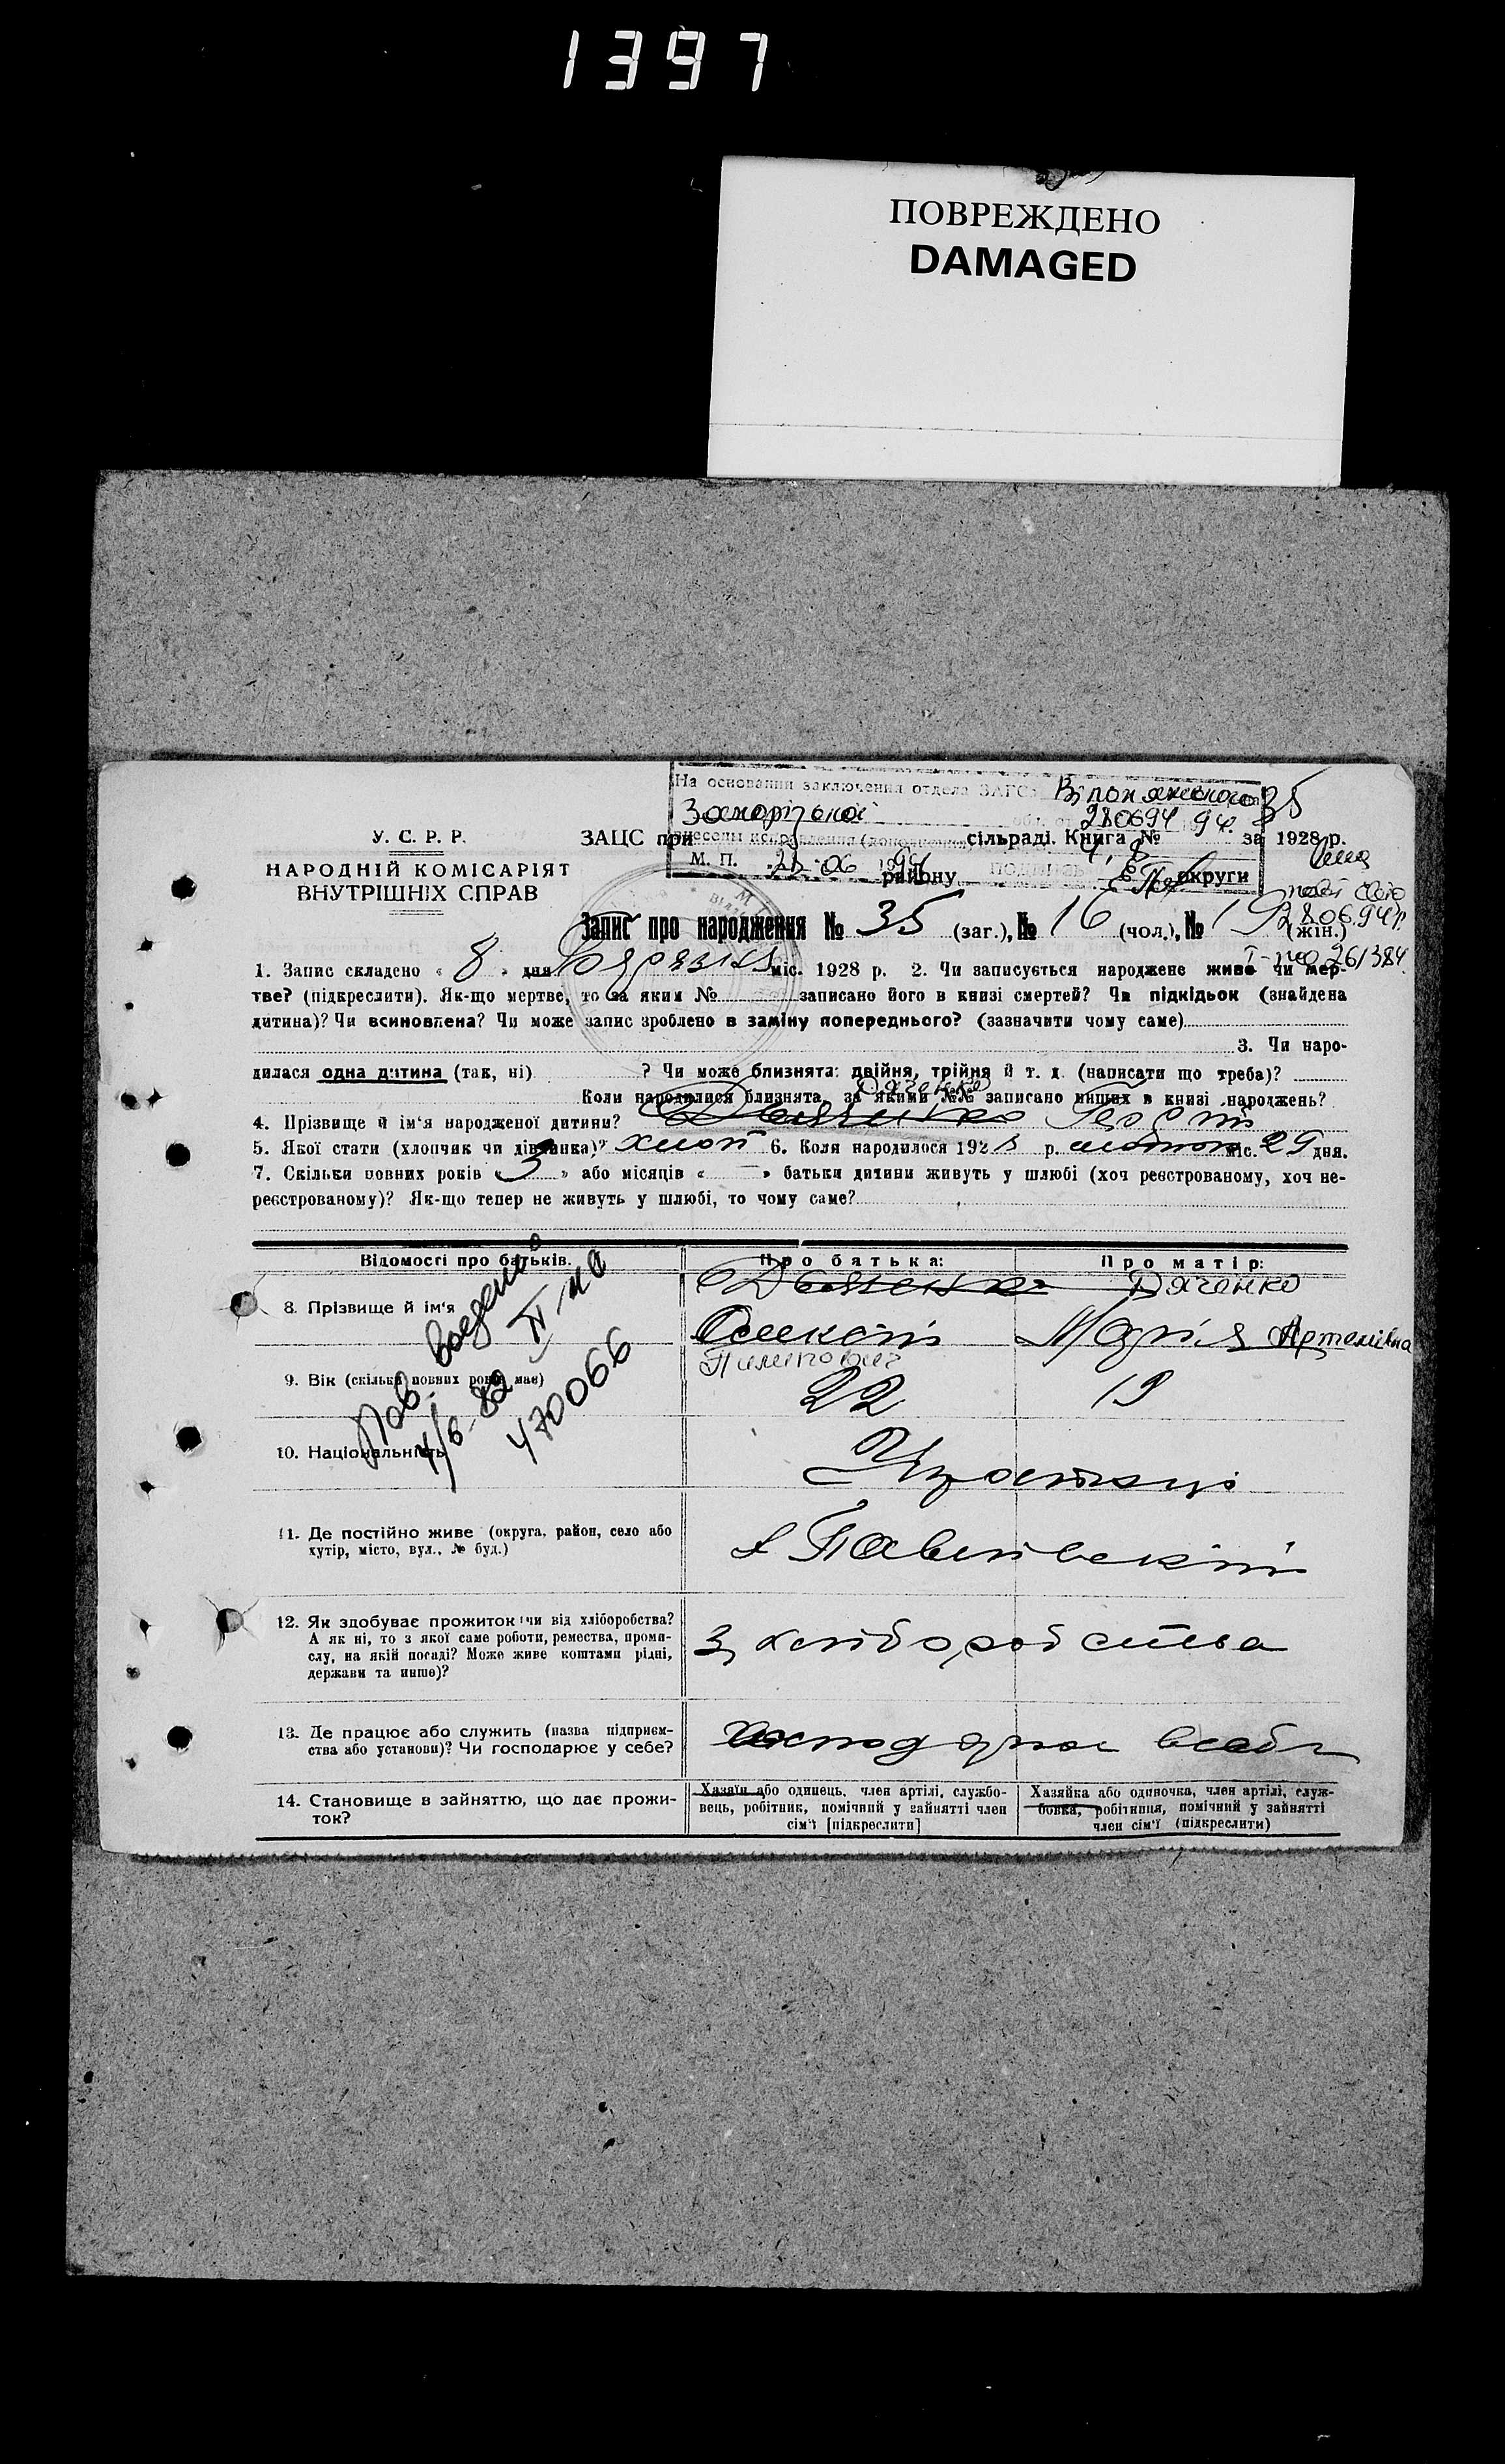 1397
ПОВРЕЖДЕНО
DAMAGED
На основании заключения отдела ЗАГС Вільнянського
Запорізької обл. от 280694 94
35
У. С. Р. Р.
ЗАЦС при сільраді. Книга № за 1928 р.
М. П. 28 06 1994
НАРОДНІЙ КОМІСАРІЯТ
ВНУТРІШНІХ СПРАВ
району округи
280694р.
І-но 261384
Запис про народження № 35 (заг.), № 16 (чол.), № 19 (жін.)
1. Запис складено « 8 » дня березня міс. 1928 р. 2. Чи записується народжене живе чи мер-
тве? (підкреслити). Як-що мертве, то за яким № записано його в книзі смертей? Чи підкідьок (знайдена
дитина)? Чи всиновлена? Чи може запис зроблено в заміну попереднього? (зазначити чому саме)
3. Чи наро-
дилася одна дитина (так, ні) ? Чи може близнята: двійня, трійня й т. д. (написати що треба)?
Коли народилися близнята, за якими №№ записано инших в книзі народжень?
Дяченко
4. Прізвище й ім'я народженої дитини? Георгій
5. Якої стати (хлопчик чи дівчинка)? хлоп 6. Коли народилося 1928 р. лютого міс. 29 дня.
7. Скільки повних років « 3 » або місяців « — » батьки дитини живуть у шлюбі (хоч реєстрованому, хоч не-
реєстрованому)? Як-що тепер не живуть у шлюбі, то чому саме?
Відомості про батьків.
Про батька:
Про матір:
8. Прізвище й ім'я
Дяченко
Олексій
Марія Артемівна
Пилипович
9. Вік (скільки повних років має)
22
19
Пов. введено
4/6-82 ІІ-но
470066
10. Національність
Українці
11. Де постійно живе (округа, район, село або
хутір, місто, вул., № буд.)
х Павлівський
12. Як здобуває прожиток: чи від хліборобства?
А як ні, то з якої саме роботи, ремества, проми-
слу, на якій посаді? Може живе коштами рідні,
держави та инше)?
З хліборобства
13. Де працює або служить (назва підприєм-
ства або установи)? Чи господарює у себе?
господарює в себе
14. Становище в зайняттю, що дає прожи-
ток?
Хазяїн або одинець, член артілі, службо-
вець, робітник, помічний у зайнятті член
сім'ї [підкреслити]
Хазяйка або одиночка, член артілі, служ-
бовка, робітниця, помічний у зайнятті
член сім'ї (підкреслити)